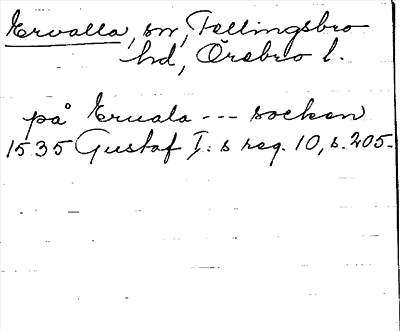 Ervalla, sn, Fellingsbro
hd, Örebro l.
på Eruala --- socken
1535 Gustaf I: s reg. 10, s. 205.